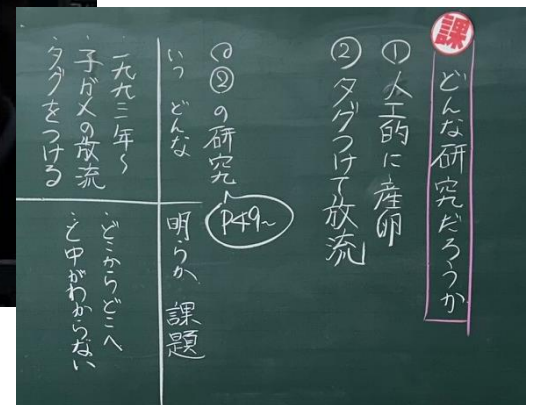 課
どんな研究だろうか
① 人工的に産卵
② タグつけて放流
②の研究
P49~
いつ どんな
明らか 課題
一九九三年~
・子ガメの放流
タグをつける
・どこからどこへ
・と中がわからない